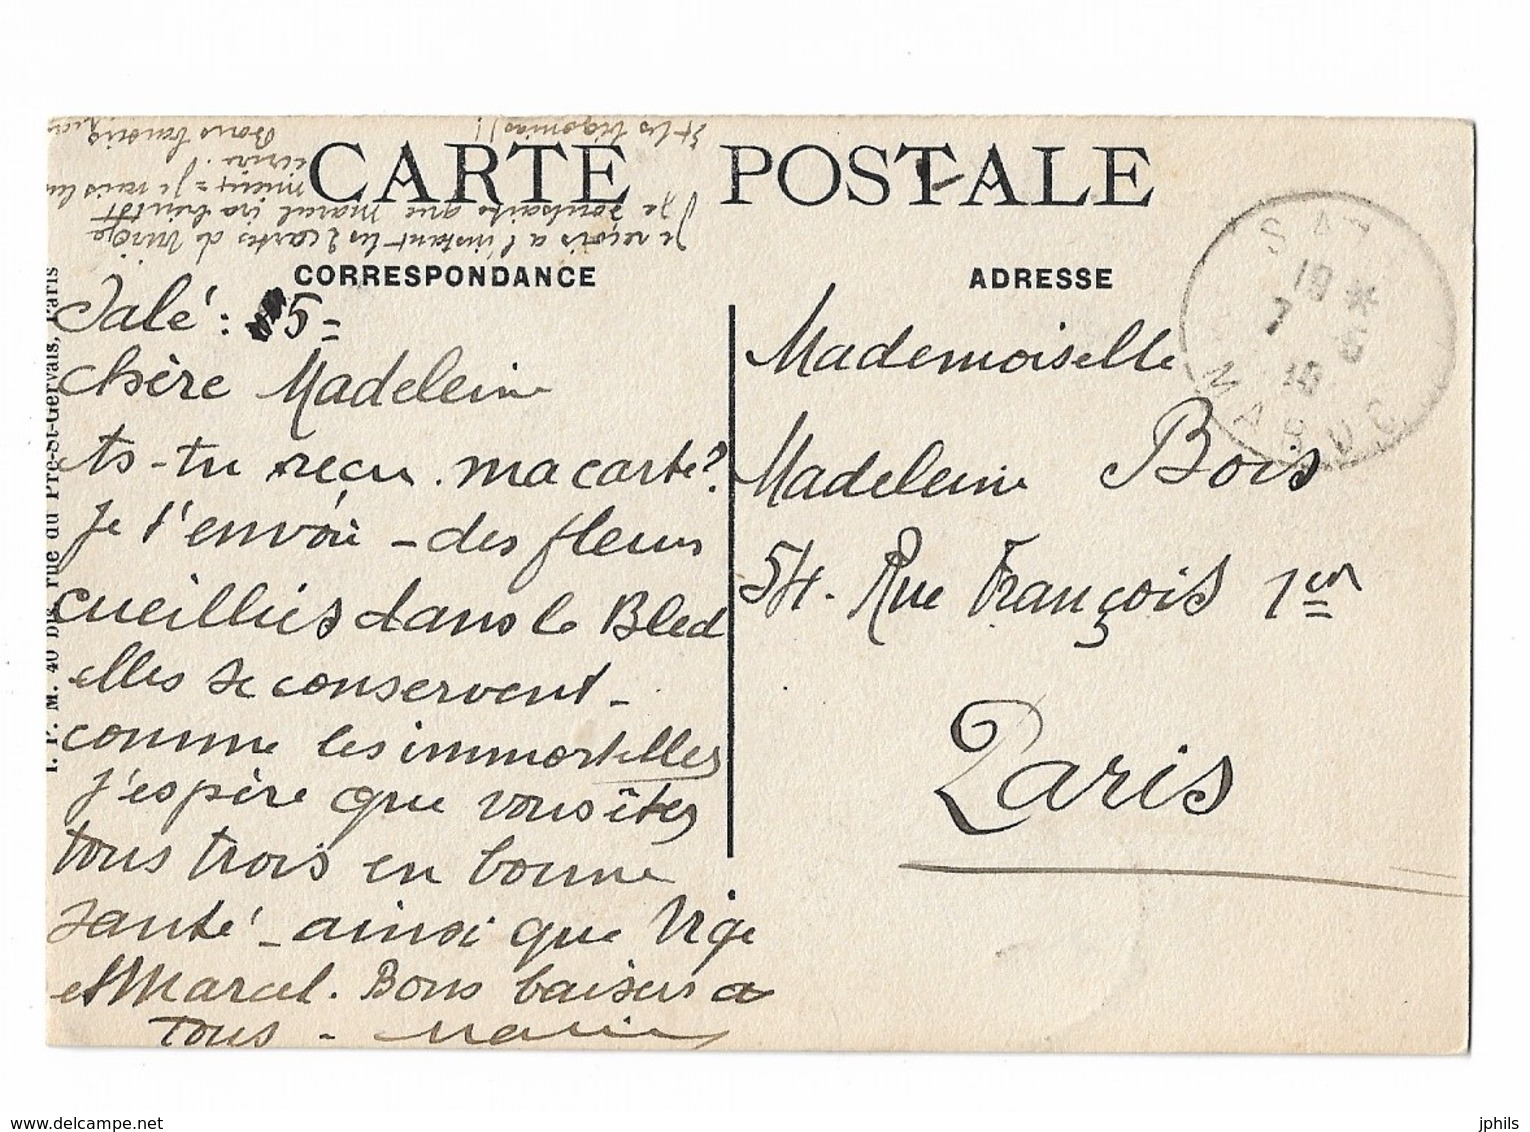 CARTE POSTALE
CORRESPONDANCE
ADRESSE
Salé: 5=
Chère Madeleine
As-tu reçu ma carte?
Je t'envoie - des fleurs
cueillies dans le Bled
elles se conservent -
comme les immortelles
j'espère que vous êtes
tous trois en bonne
santé - ainsi que Vige
et Marcel. Bons baisers a
tous -
Je reçois a l'instant les 2 cartes de
Je souhaite que Marcel ira bientôt
mieux =
écrire.
Mademoiselle
Madeleine Bois
54. Rue François 1er
Paris
SALÉ
MAROC
19 *
7 5
I. P. M. 40 bis rue du Pré-St-Gervais, Paris
www.delcampe.net
jphils